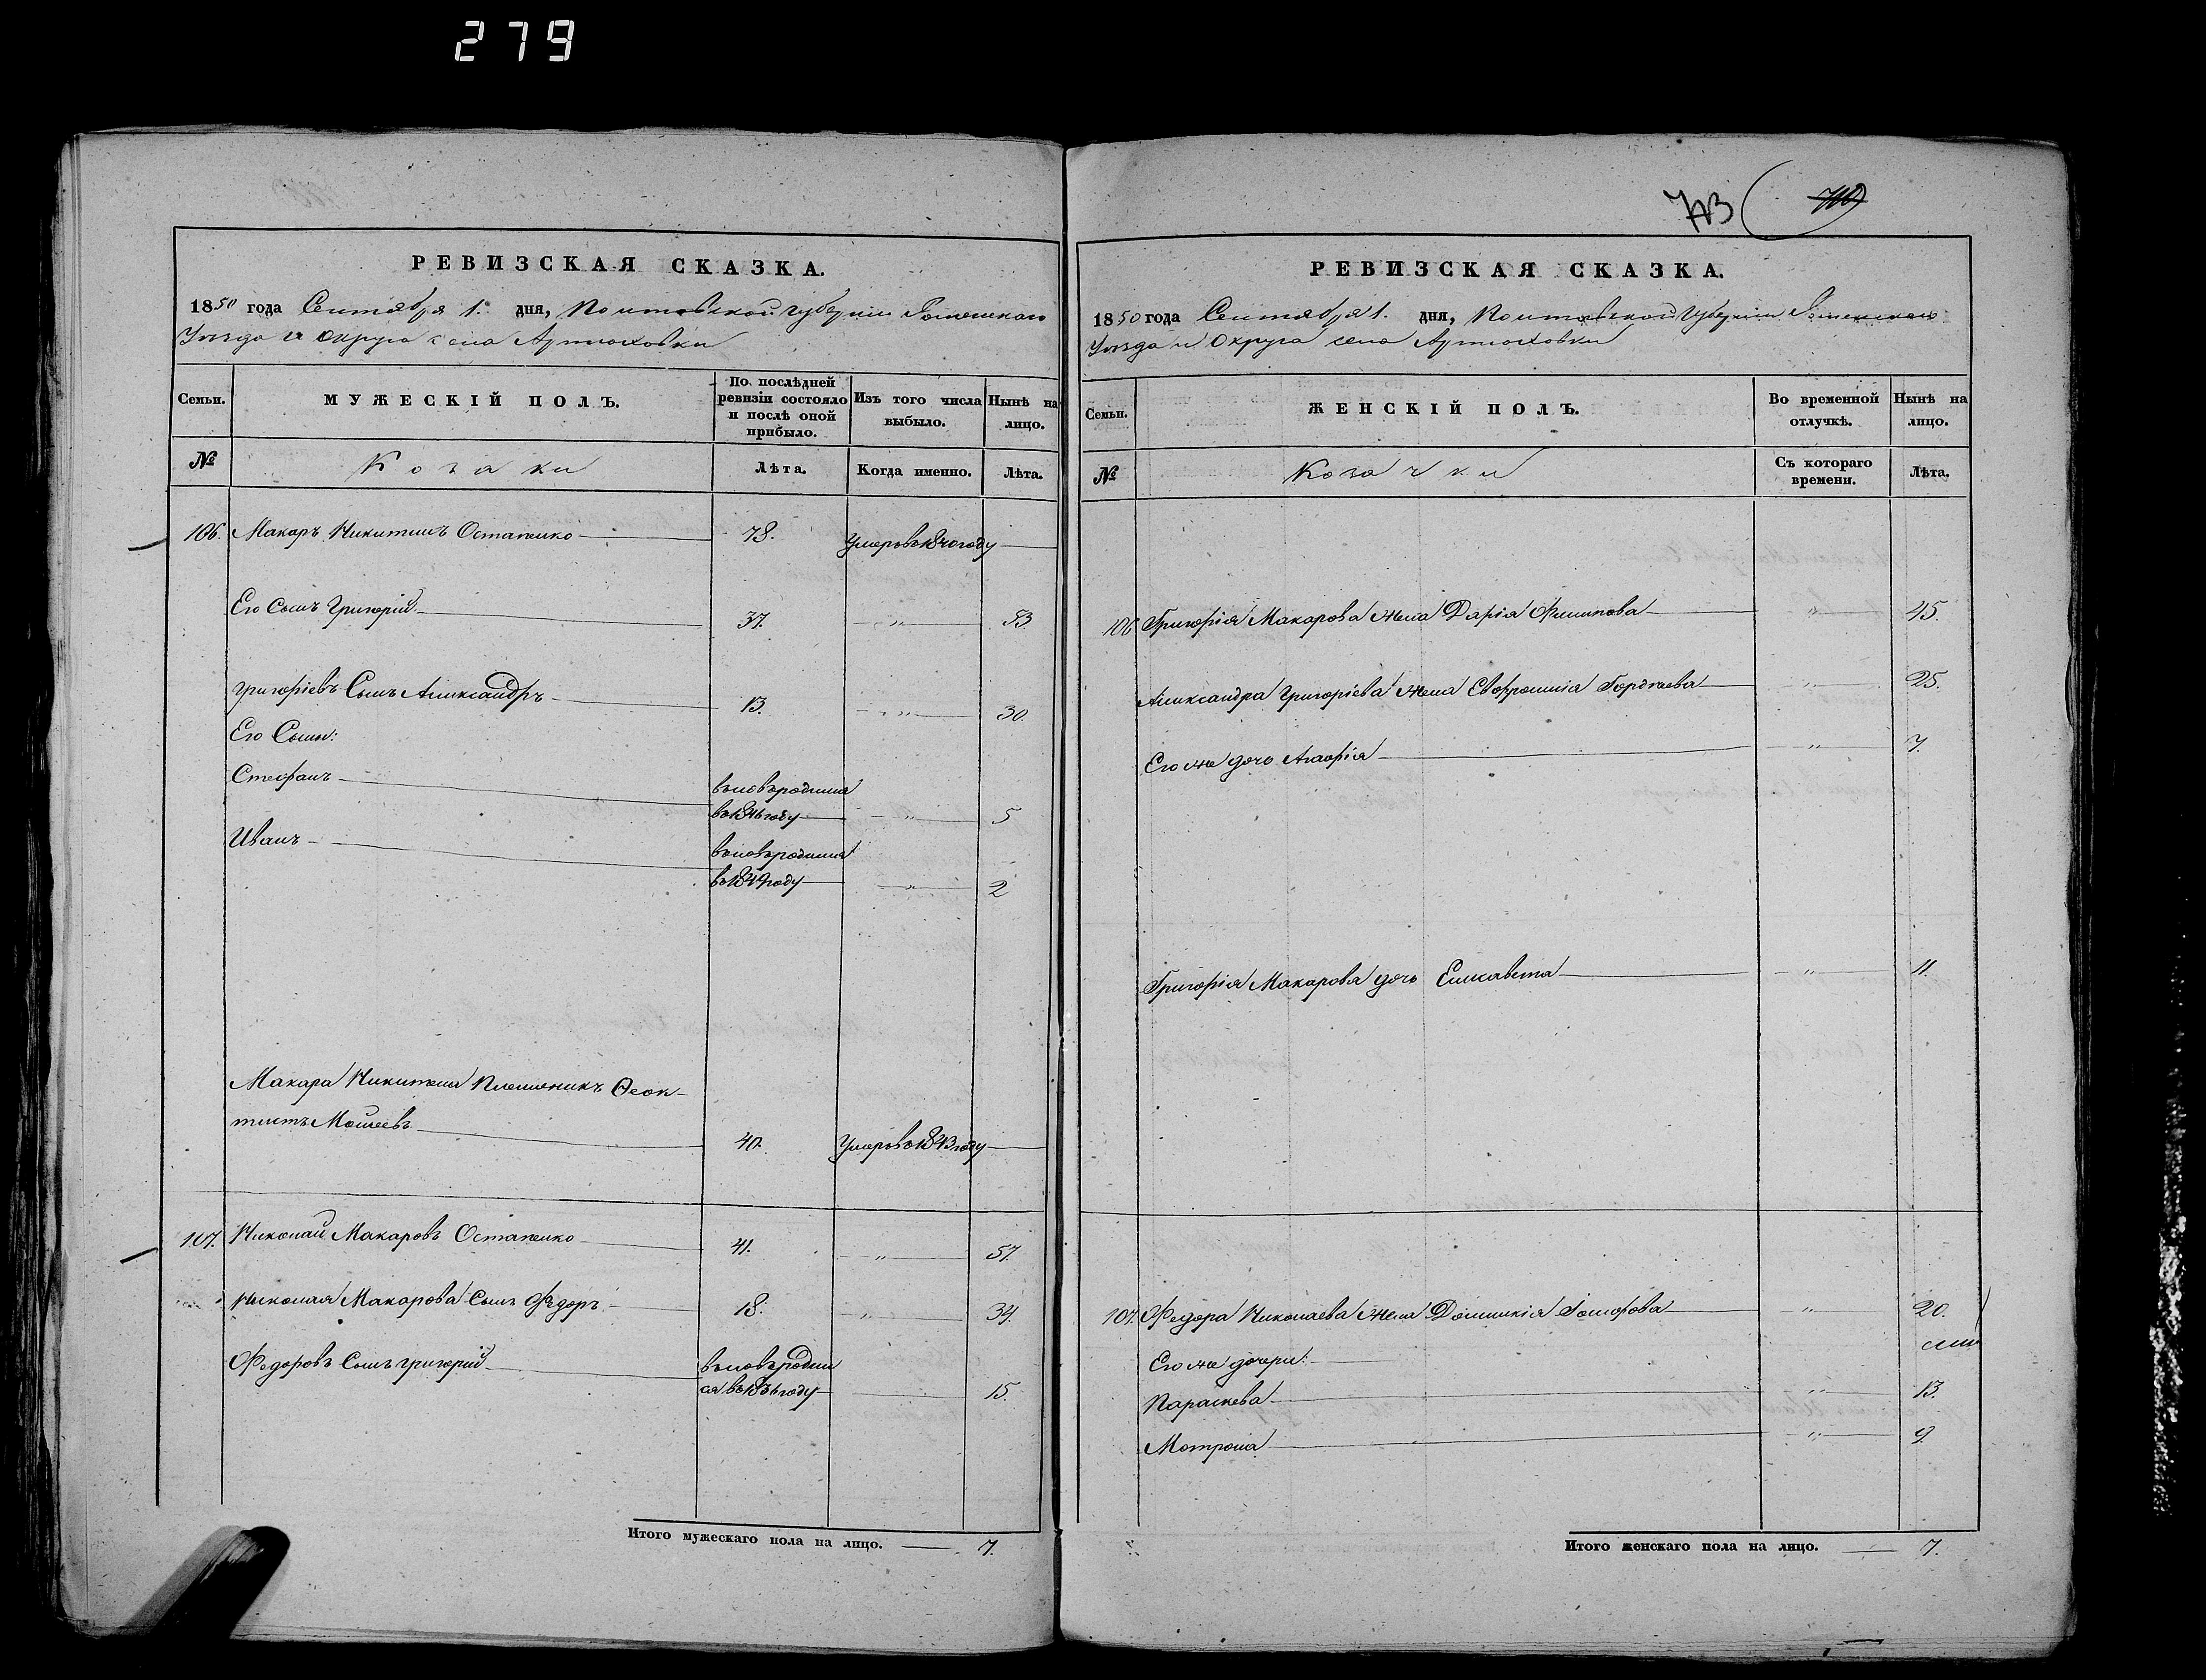 279
713
710
РЕВИЗСКАЯ СКАЗКА.
1850 года Сентября 1. дня, Полтавской губернии Роменского
Уезда и округа села Артюховки
Семьи.
МУЖЕСКІЙ ПОЛЪ.
По послѣдней ревизіи состояло и послѣ оной прибыло.
Изъ того числа выбыло.
Нынѣ на лицо.
№
Козаки
Лѣта.
Когда именно.
Лѣта.
106. Макаръ Никитинъ Остапенко 78. Умеръ въ 1840 году
Его Сынъ Григорій 37. " 53
Григоріевъ Сынъ Александръ 13. " 30.
Его Сыны:
Стефанъ вновьродился
въ 1846 году " 5
Иванъ вновьродился
въ 1849 году " 2
Макара Никитина Племеникъ Ѳеок-
тистъ Моисеевъ 40. Умеръ въ 1843 году
107. Николай Макаровъ Остапенко 41. " 57.
Николая Макарова Сынъ Федоръ 18. " 34.
Федоровъ Сынъ Григорій вновьродил
ся въ 1836 году 15.
Итого мужескаго пола на лицо. 7.
РЕВИЗСКАЯ СКАЗКА.
1850 года Сентября 1. дня, Полтавской Губернии Роменского
Уезда и Округа села Артюховки
Семьи.
ЖЕНСКІЙ ПОЛЪ.
Во временной отлучкѣ.
Нынѣ на лицо.
№
Козачки
Съ котораго времени.
Лѣта.
106 Григорія Макарова жена Дарія Филипова " 45.
Александра Григоріева жена Евфросинія Гордѣева " 25.
Его же дочь Агафія " 7.
Григорія Макарова дочь Елисавета " 11.
107. Федора Николаева жена Домникія 20.
Его же дочери:
Параскева " 13.
Мотрона " 9
Итого женскаго пола на лицо. 7.